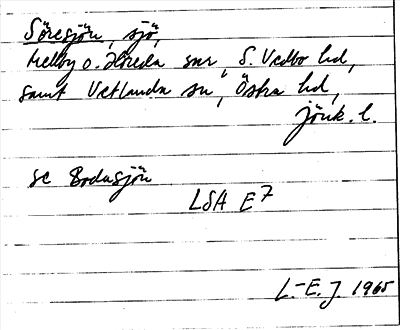 Söresjön, sjö,
Mellby o. Höreda snr S. Vedbo hd,
samt Vetlanda sn, Östra hd,
Jönk. l.
se Bodasjön
LSA E7
L.-E. J. 1965